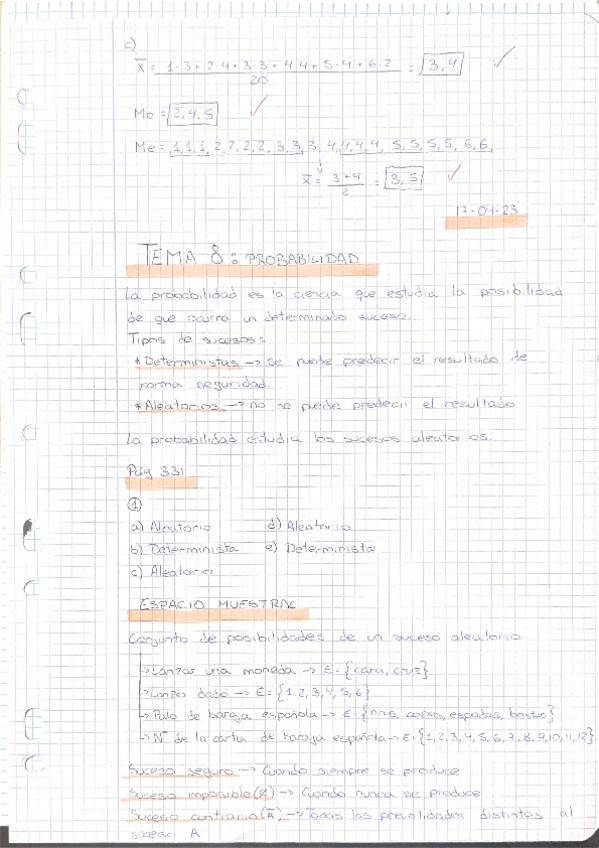 c)
X̄ = 1·3+2·4+3·3+4·4+5·4+6·2 / 20 = 3,4
Mo = 2,4,5
Me = 1,1,1,2,2,2,2,3,3,3,4,4,4,4,5,5,5,5,6,6,
X̄ = 3+4 / 2 = 3,5
17-04-23
TEMA 8: PROBABILIDAD
La probabilidad es la ciencia que estudia la posibilidad
de que ocurra un determinado suceso.
Tipos de sucesos:
* Deterministas -> se puede predecir el resultado de
forma seguridad.
* Aleatorios -> no se puede predecir el resultado
La probabilidad estudia los sucesos aleatorios.
Pág 331
①
a) Aleatorio d) Aleatorio
b) Determinista e) Determinista
c) Aleatorio
ESPACIO MUESTRAL
Conjunto de posibilidades de un suceso aleatorio.
-> Lanzar una moneda -> E={cara, cruz}
-> Lanzar dado -> E={1,2,3,4,5,6}
-> Palo de baraja española -> E={oros, copas, espadas, bastos}
-> Nº de la carta de baraja española -> E={1,2,3,4,5,6,7,8,9,10,11,12}
Suceso seguro -> Cuando siempre se produce
Suceso imposible (Ø) -> Cuando nunca se produce
Suceso contrario (Ā) -> Todas las posibilidades distintas al
suceso A